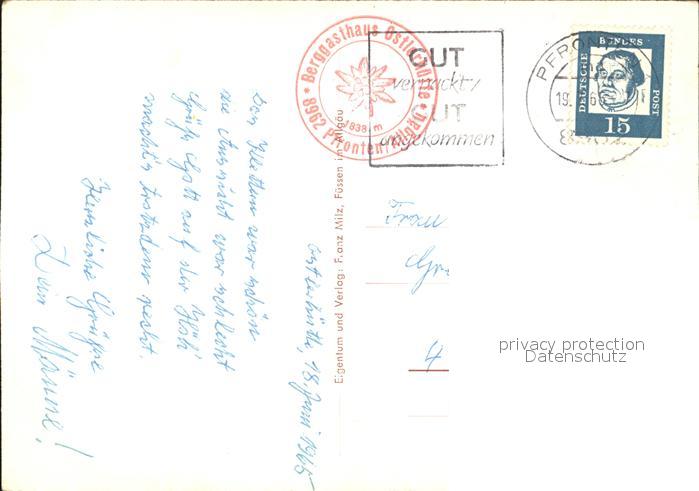 Osterhütte, 18. Juni 1965
Das Wetter war schön
die Aussicht war schlecht
Grüß Gott auf der Hütte
macht's trotzdem recht.
Herzliche Grüße
Dein Männe!
Berggasthaus Ostlerhütte
1838 m
8962 Pfronten/Allgäu
GUT
verpackt/
GUT
angekommen
PFRONTEN
19.
DEUTSCHE BUNDESPOST
15
Eigentum und Verlag: Franz Milz, Füssen im Allgäu
Frau
Gr
4
privacy protection
Datenschutz